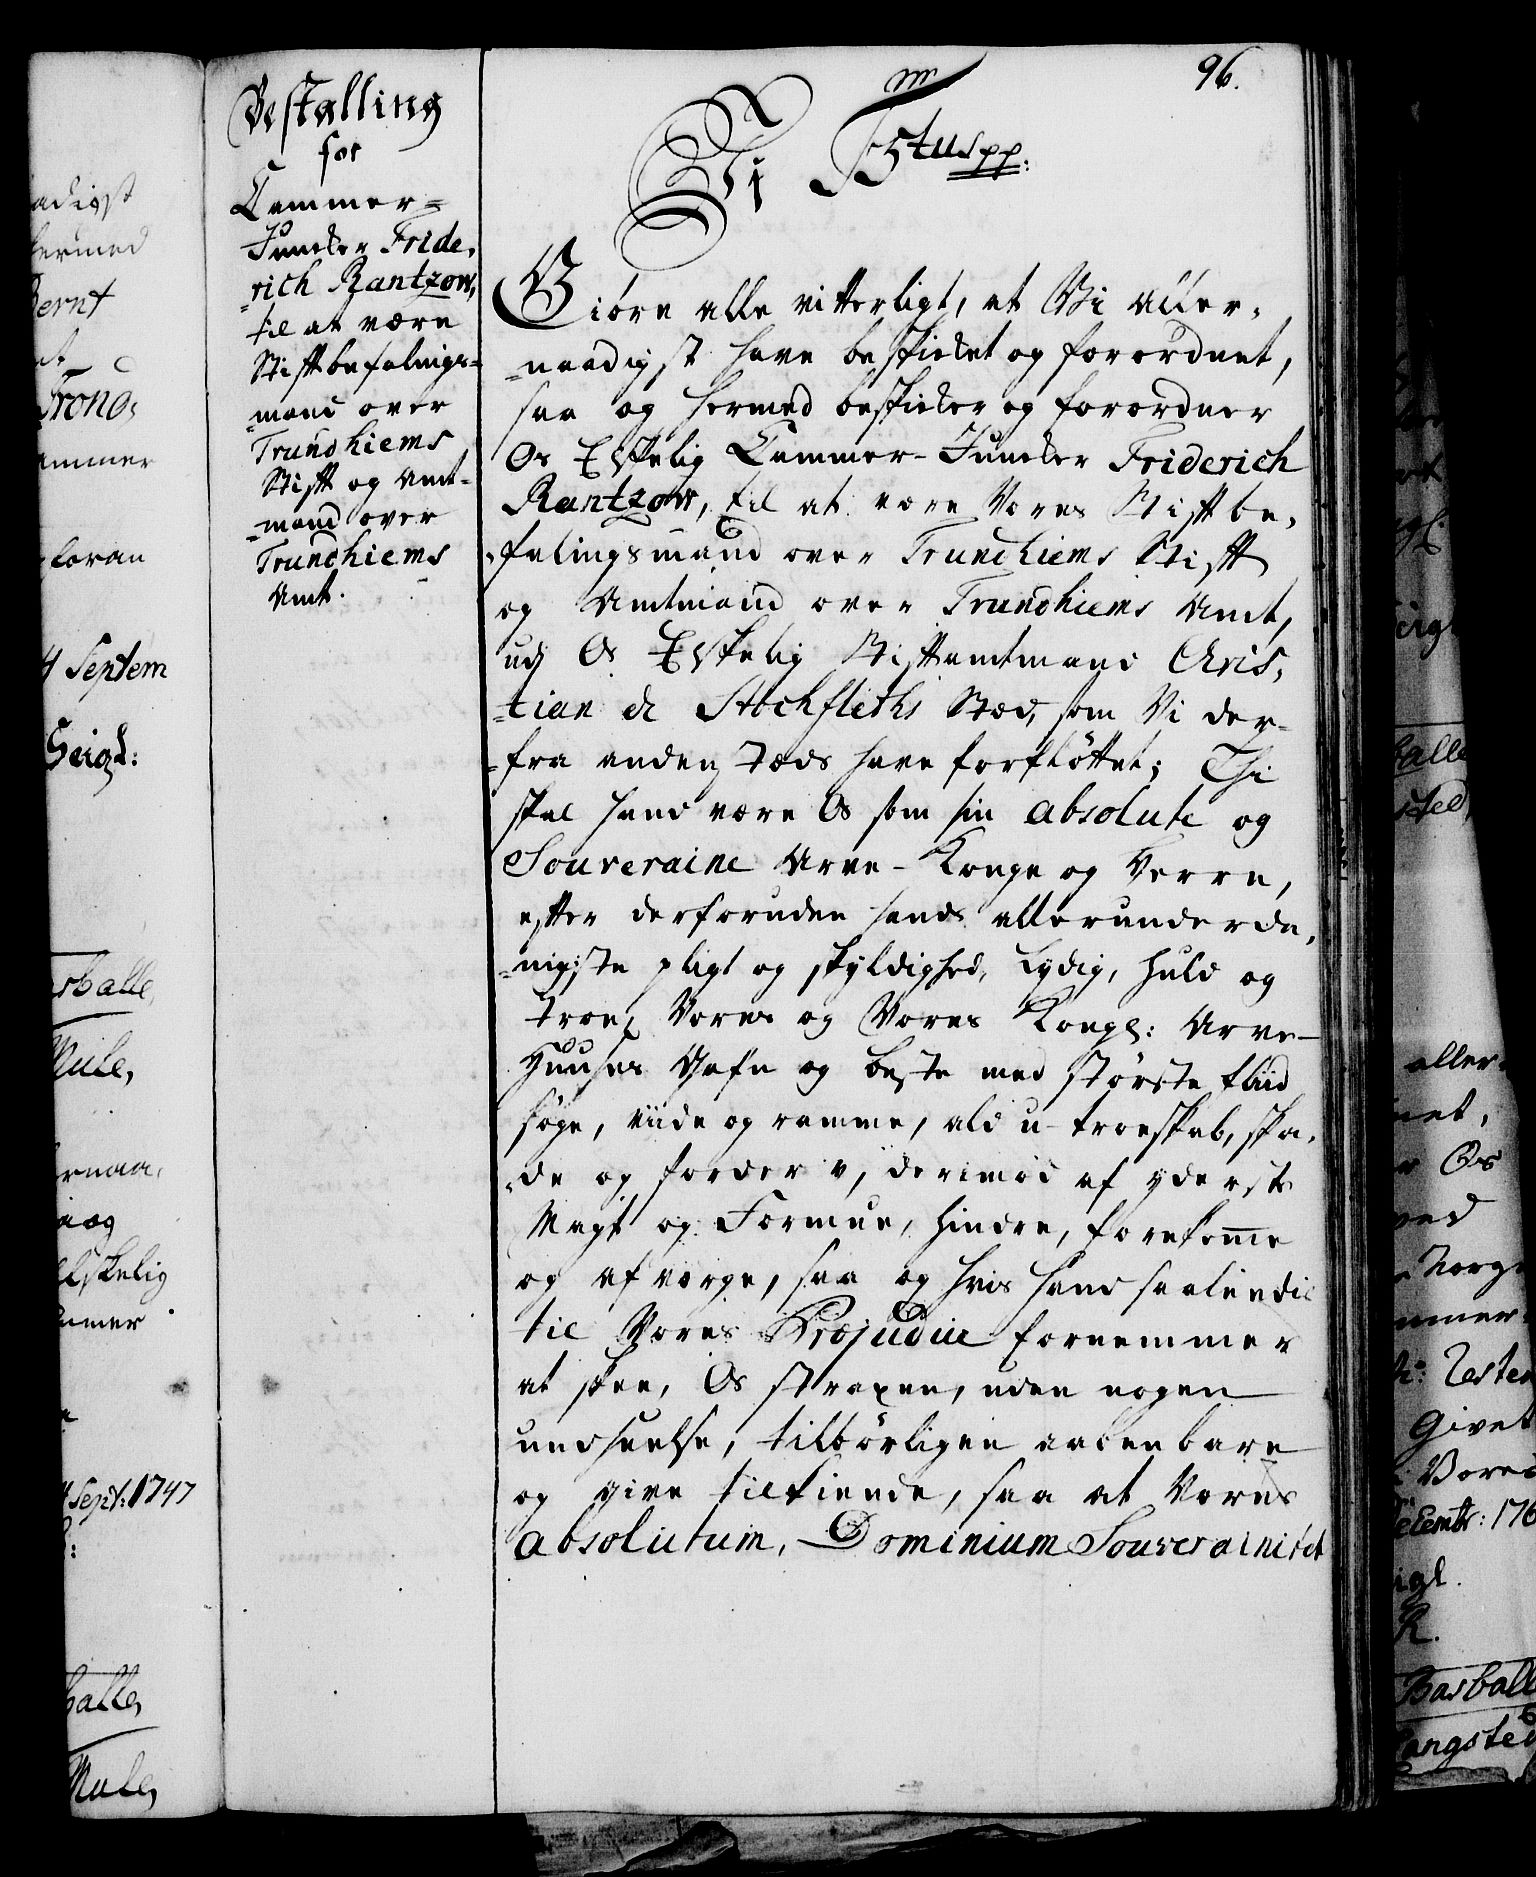 96.
Bestalling
for
Cammer-
Juncker Fride-
rich Rantzow,
til at være
Stiftbefalings-
mand over
Trundhiems
Stift og Amt-
mand over
Trundhiems
Amt.
Vi F5tus pp:
Giöre alle vitterligt, at Vi aller-
naadigst have beskicket og forordnet,
saa og hermed beskicker og forordner
Os Elskelig Cammer-Juncker Friderich
Rantzow, til at være Vores Stiftbe-
falingsmand over Trundhiems Stift
og Amtmand over Trundhiems Amt,
udj Os Elskelig Stiftamtmand Chris-
tian de Stochfleths Stæd, som Vi der-
fra andenstæds have forfløttet; Thi
skal hand være Os som sin absolute og
Souveraine Arve-Konge og Herre,
efter derforuden hands allerunderda-
nigste pligt og skyldighed, Lydig, huld og
troe, Vores og Vores Kongl: Arve-
Huuses Gafn og beste med störste fliid
söge, viide og ramme, ald u-troeskab, ska-
de og forderv, derimod af yderste
Magt og Formue, hindre, forekomme
og afværge, saa og hvis hand saaledis
til Vores Præjudice fornemmer
at skee, Os straxen, uden nogen
undseelse, tilbörligen aabenbare
og give tilkiende, saa at Vores
absolutum, Dominium Souverainitet
adigst
hermed
Bernt
at
Trond-
ammer
foran
4 Septem
Seigl:
asballe
Mule,
ernaa-
aog
elskelig
ammer
4 Sept: 1747
balle,
Mule,
aller-
net,
Os
ved
Norge
mmer-
Givet
Vores
Decembr: 176
igl.
R.
Basball
Langsted